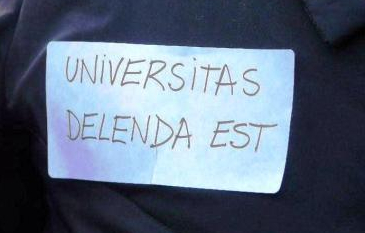 UNIVERSITAS
DELENDA EST